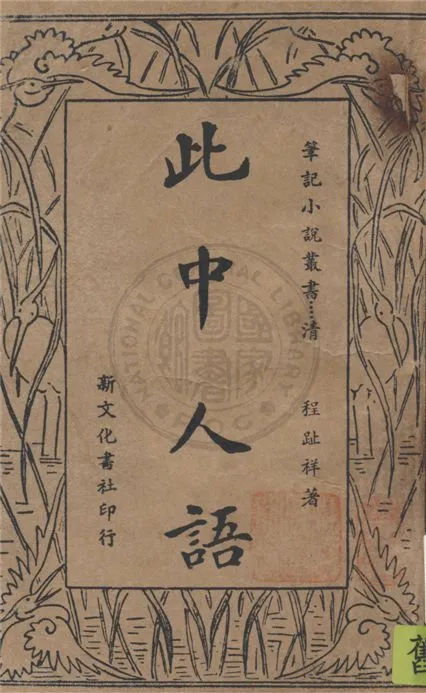 筆記小說叢書……清 程趾祥著
此中人語
新文化書社印行
NATIONAL CENTRAL LIBRARY
國家圖書館
舊